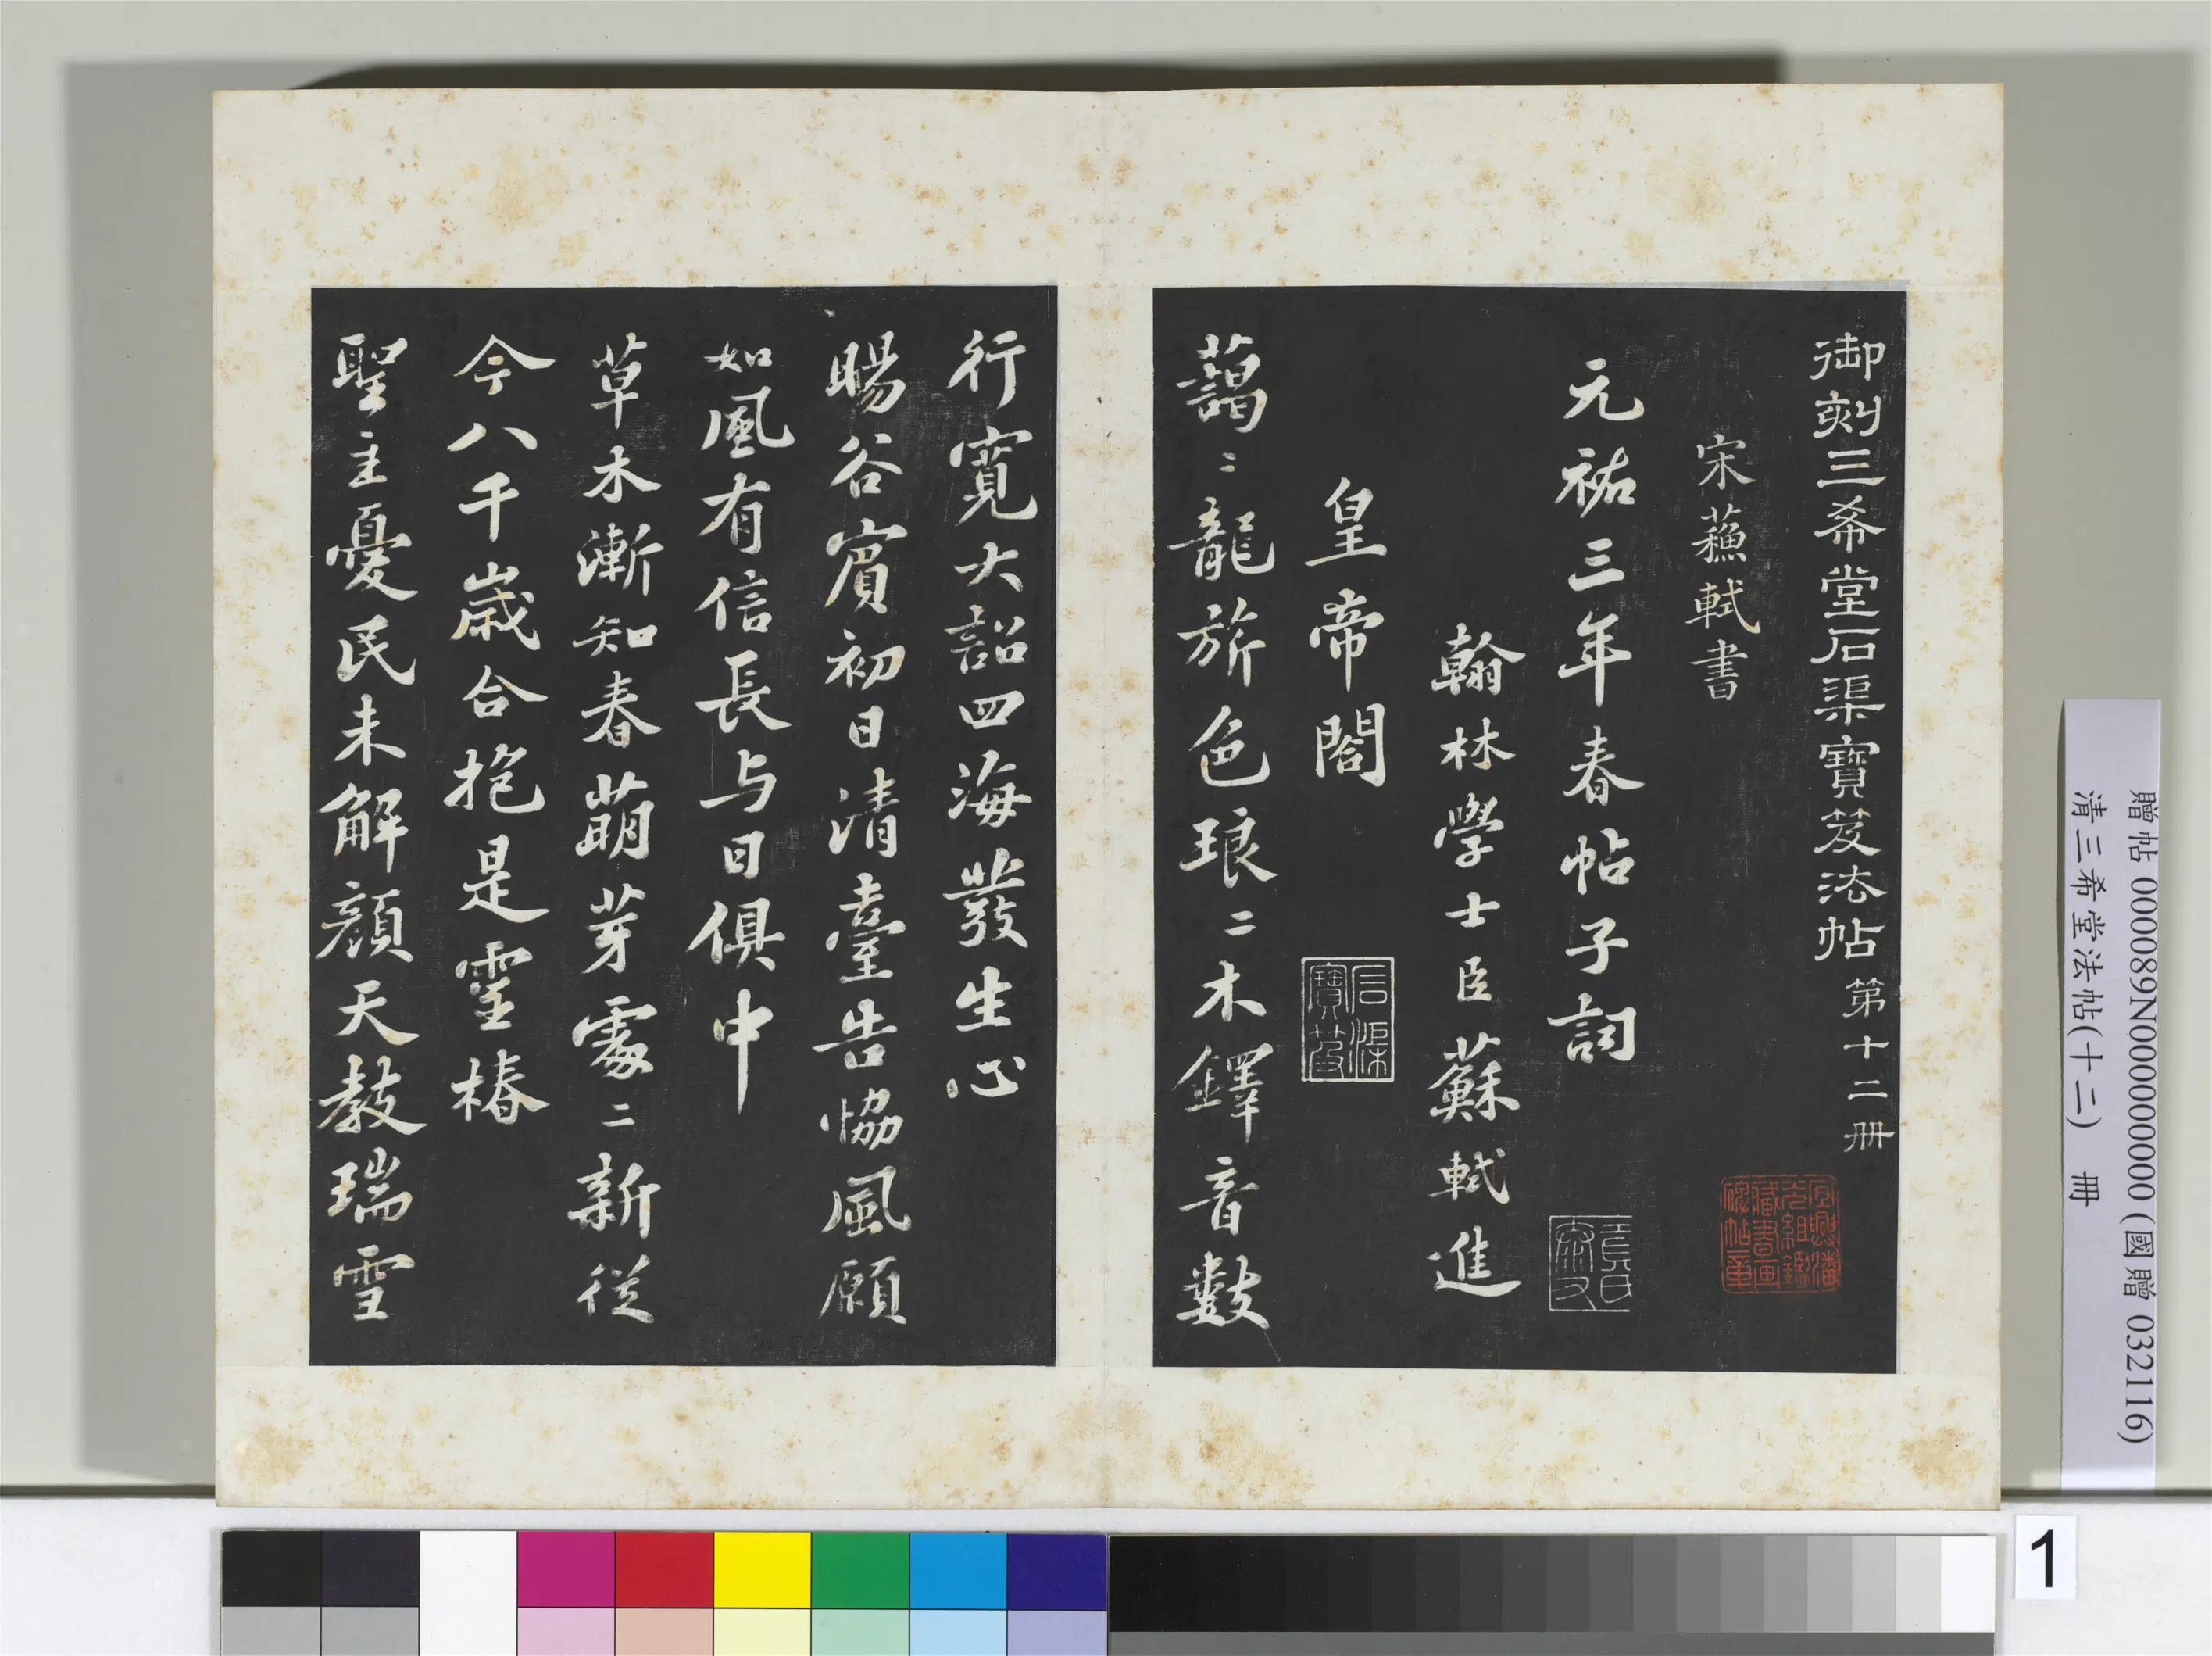 御刻三希堂石渠寶笈法帖 第十二冊
宋蘓軾書
元祐三年春帖子詞
翰林學士臣蘇軾進
皇帝閣
石渠寶笈
藹〻龍旂色琅〻木鐸音數
行寬大詔四海發生心
暘谷賓初日清臺告恊風願
如風有信長与日俱中
草木漸知春萌芽處〻新從
今八千歲合抱是靈椿
聖主憂民未解顏天教瑞雪
贈帖 000089N000000000 (國贈 032116)
清三希堂法帖(十二) 冊
1